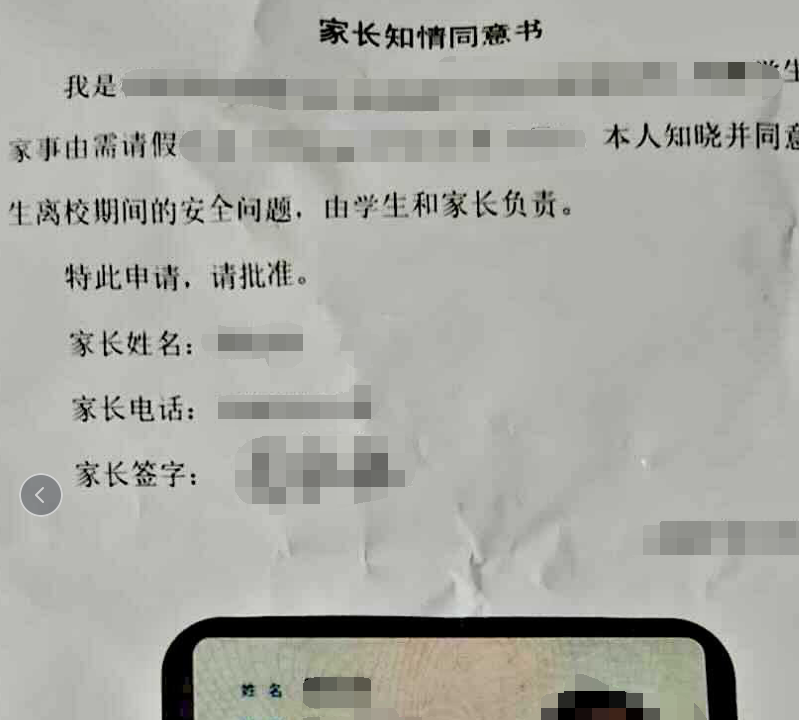 家长知情同意书
我是 学生
家事由需请假 本人知晓并同意
生离校期间的安全问题，由学生和家长负责。
特此申请，请批准。
家长姓名：
家长电话：
家长签字：
姓名